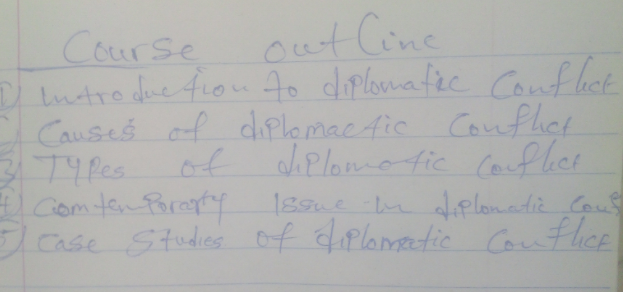 Course outline
1) Introduction to diplomatic Conflict
Causes of diplomactic Conflict
3) Types of diplomatic Conflict
4) Comtemporary Issue in diplomatic Conf
5) Case Studies of diplomatic Conflict